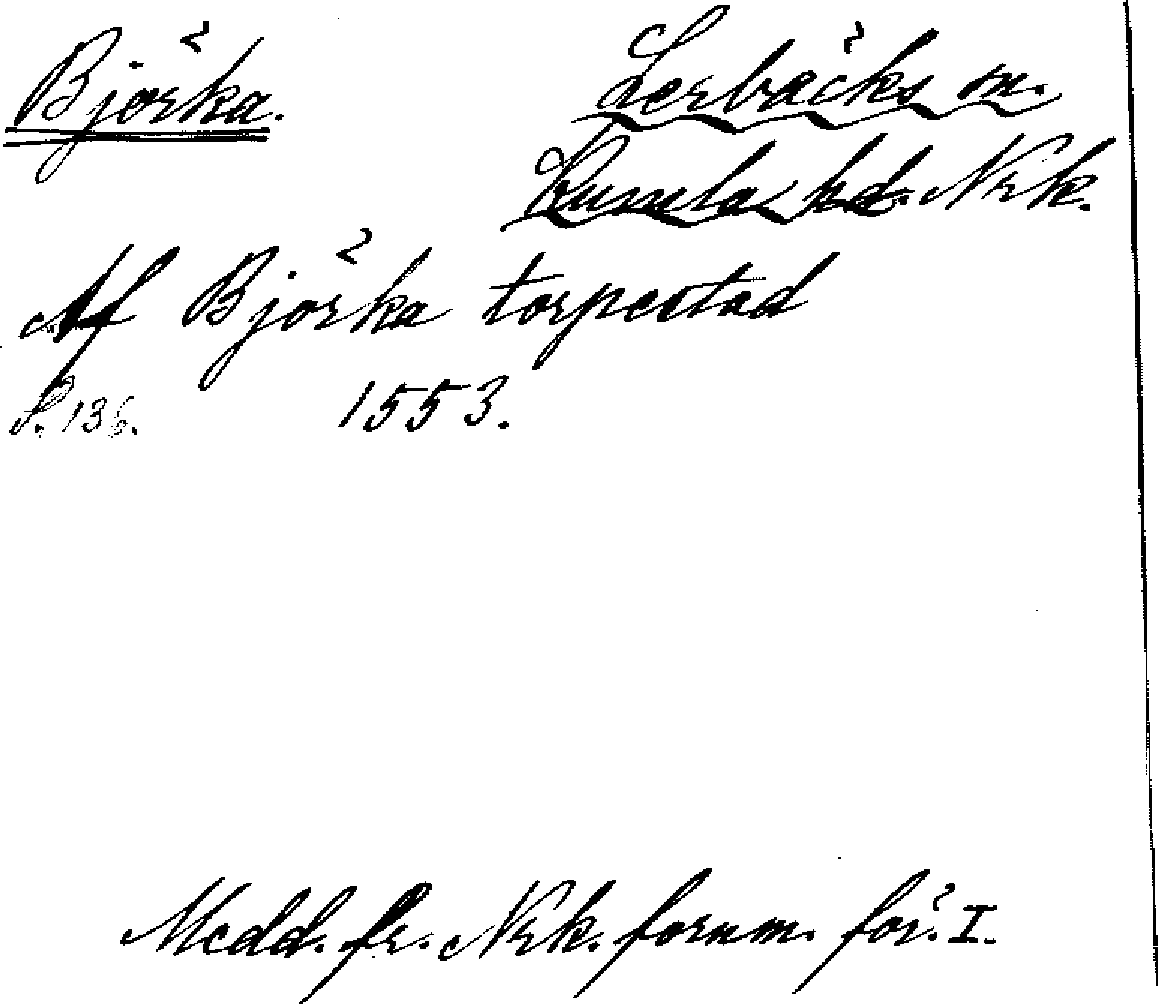 Björka. Lerbäcks sn.
Kumla hd. Nrk.
Af Björka torpestad
S. 136. 1553.
Medd. fr. Nrk. fornm. för. I.